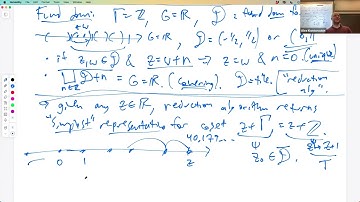 Fund dom: Γ = ℤ, G = ℝ, 𝒟 = fund dom for
𝒟 = (-1/2, 1/2] or
• if z, w ∈ 𝒟 & z = w + n ⇒ z = w & n = 0 (unique)
• ⨆ 𝒟 + n = G = ℝ. (covering). 𝒟 = tile. ["reduction
alg"
→ given any z ∈ ℝ, reduction algorithm returns
"simplest" representative for coset z + Γ = z + ℤ
40.177...
z₀ ∈ 𝒟.
0 1 z